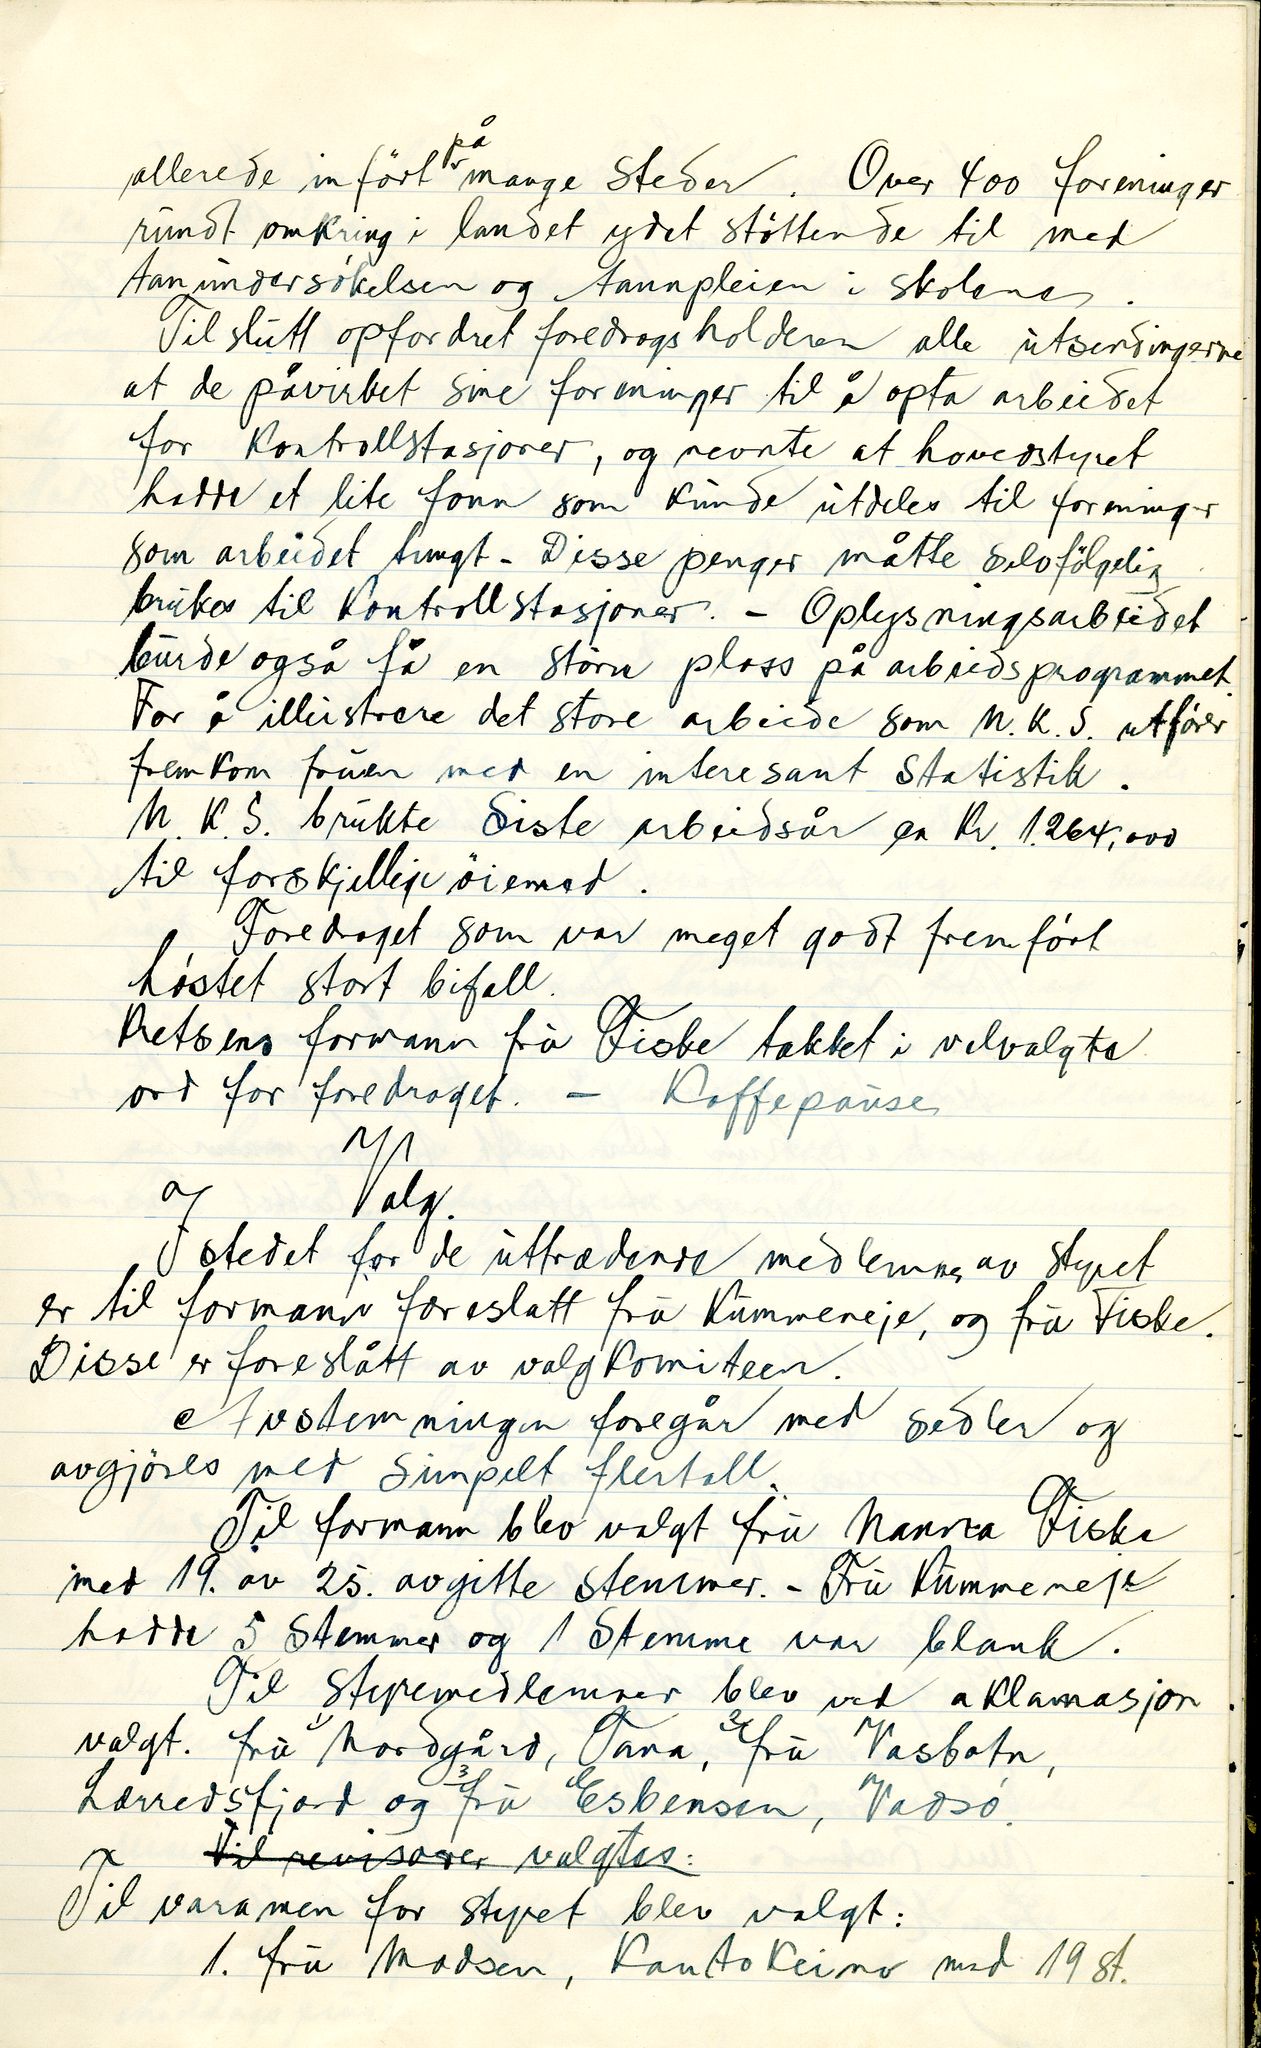 allerede infört på mange steder. Over 400 foreninger
rundt omkring i landet ydet støttende til med
tanundersøkelsen og tannpleien i skolene.
Til slutt opfordret foredragsholderen alle utsendingerne
at de påvirket sine foreninger til å opta arbeidet
for Kontrollstasjoner, og nevnte at hovedstyret
hadde et lite fonn som kunde utdeles til foreninger
som arbeidet tungt - Disse penger måtte selvfölgelig
brukes til Kontrollstasjoner. - Oplysningsarbeidet
burde også få en större plass på arbeidsprogrammet.
For å illustrere det store arbeide som N.K.S. utfører
fremkom fruen med en interesant statistik.
N.K.S. brukte siste arbeidsår ca Kr. 1.264,000
til forskjellige öiemed.
Foredraget som var meget godt fremfört
høstet stort bifall.
Kretsens formann fru Fiske takket i velvalgte
ord for foredraget. - Kaffepause
Valg.
I stedet for de uttrædende medlemmer av styret
er til formann foreslått fru Kummeneje, og fru Fiske.
Disse er foreslått av valgkomiteen.
Avstemningen foregår med sedler og
avgjöres med simpelt flertall.
Til formann blev valgt fru Nanna Fiske
med 19. av 25. avgitte stemmer. - Fru Kummeneje
hadde 5 stemmer og 1 stemme var blank.
Til styremedlemmer blev ved aklamasjon
valgt. 1 fru Nordgård, Tana, 2 fru Vasbotn,
Lærredsfjord og 3 fru Esbensen, Vadsø.
Til revisorer valgtes:
Til varamen for styret blev valgt:
1. fru Madsen, Kautokeino med 19 st.